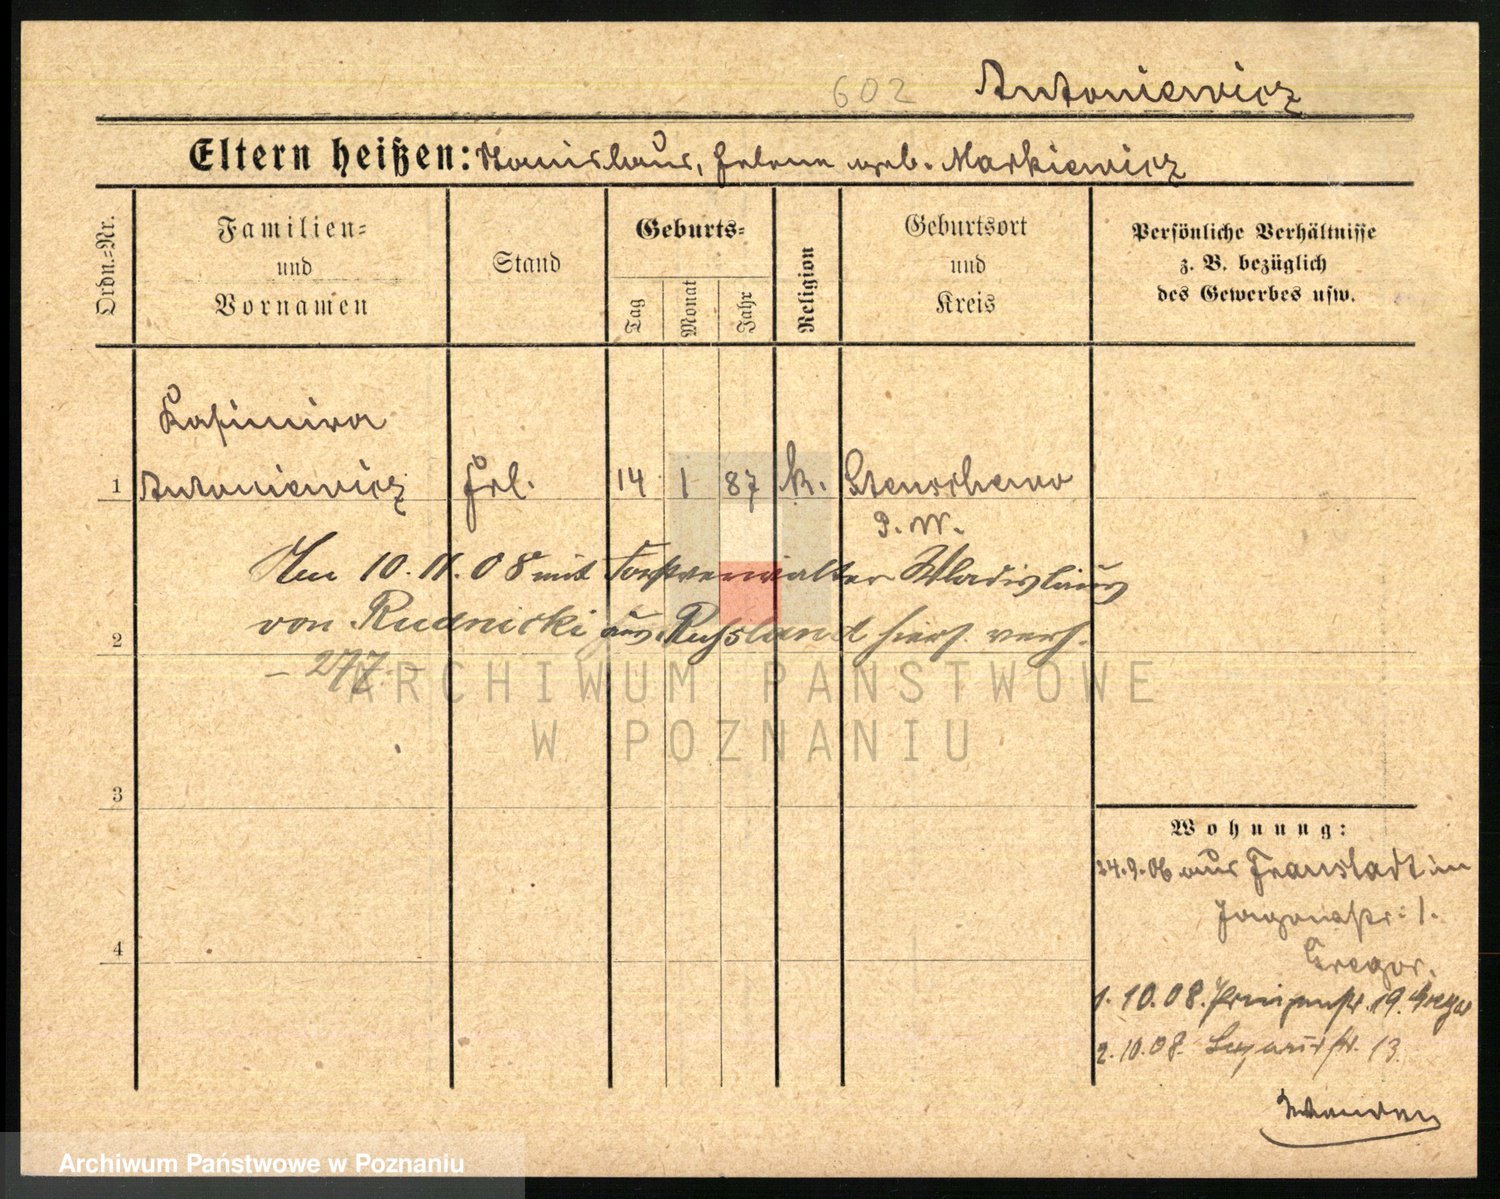 602 Antoniewicz
Eltern heißen: Stanislaus, Helena geb. Markiewicz
Ordn.-Nr.
Familien-
und
Vornamen
Stand
Geburts-
Tag
Monat
Jahr
Religion
Geburtsort
und
Kreis
Persönliche Verhältnisse
z. B. bezüglich
des Gewerbes usw.
Kasimira
1 Antoniewicz Frl. 14 1 87 k. Stenschewo
P. W.
Am 10.11.08 mit Forstverwalter Wladislaus
von Rudnicki aus Russland hiers. verh.
2
- 277 -
ARCHIWUM PAŃSTWOWE
W POZNANIU
3
Wohnung:
24.9.06 aus Fraustadt in
str. 1.
4
Gregor.
1.10.08. Prinzenstr. 19. Gregor
2.10.08. Lazarusstr. 13.
Archiwum Państwowe w Poznaniu